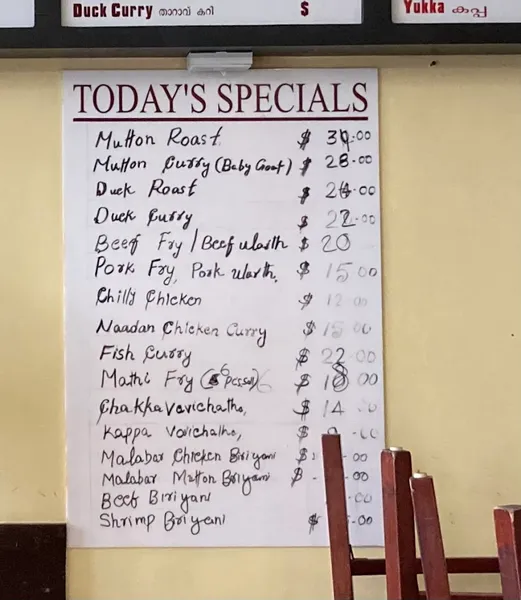 Duck Curry താറാവ് കറി $
Yukka കപ്പ
TODAY'S SPECIALS
Mutton Roast $ 30.00
Mutton Curry (Baby Goat) $ 28.00
Duck Roast $ 24.00
Duck Curry $ 22.00
Beef Fry / Beef ularth $ 20
Pork Fry, Pork ularth. $ 15 00
Chilly Chicken $ 12 00
Naadan Chicken Curry $ 15 00
Fish Curry $ 22 00
Mathi Fry $ 18 00
Chakka Vevichatho, $ 14
Kappa $
Malabar Chicken Biriyani $ .00
Malabar Mutton Briyani $ .00
Beef Biriyani .00
Shrimp Briyani $ .00